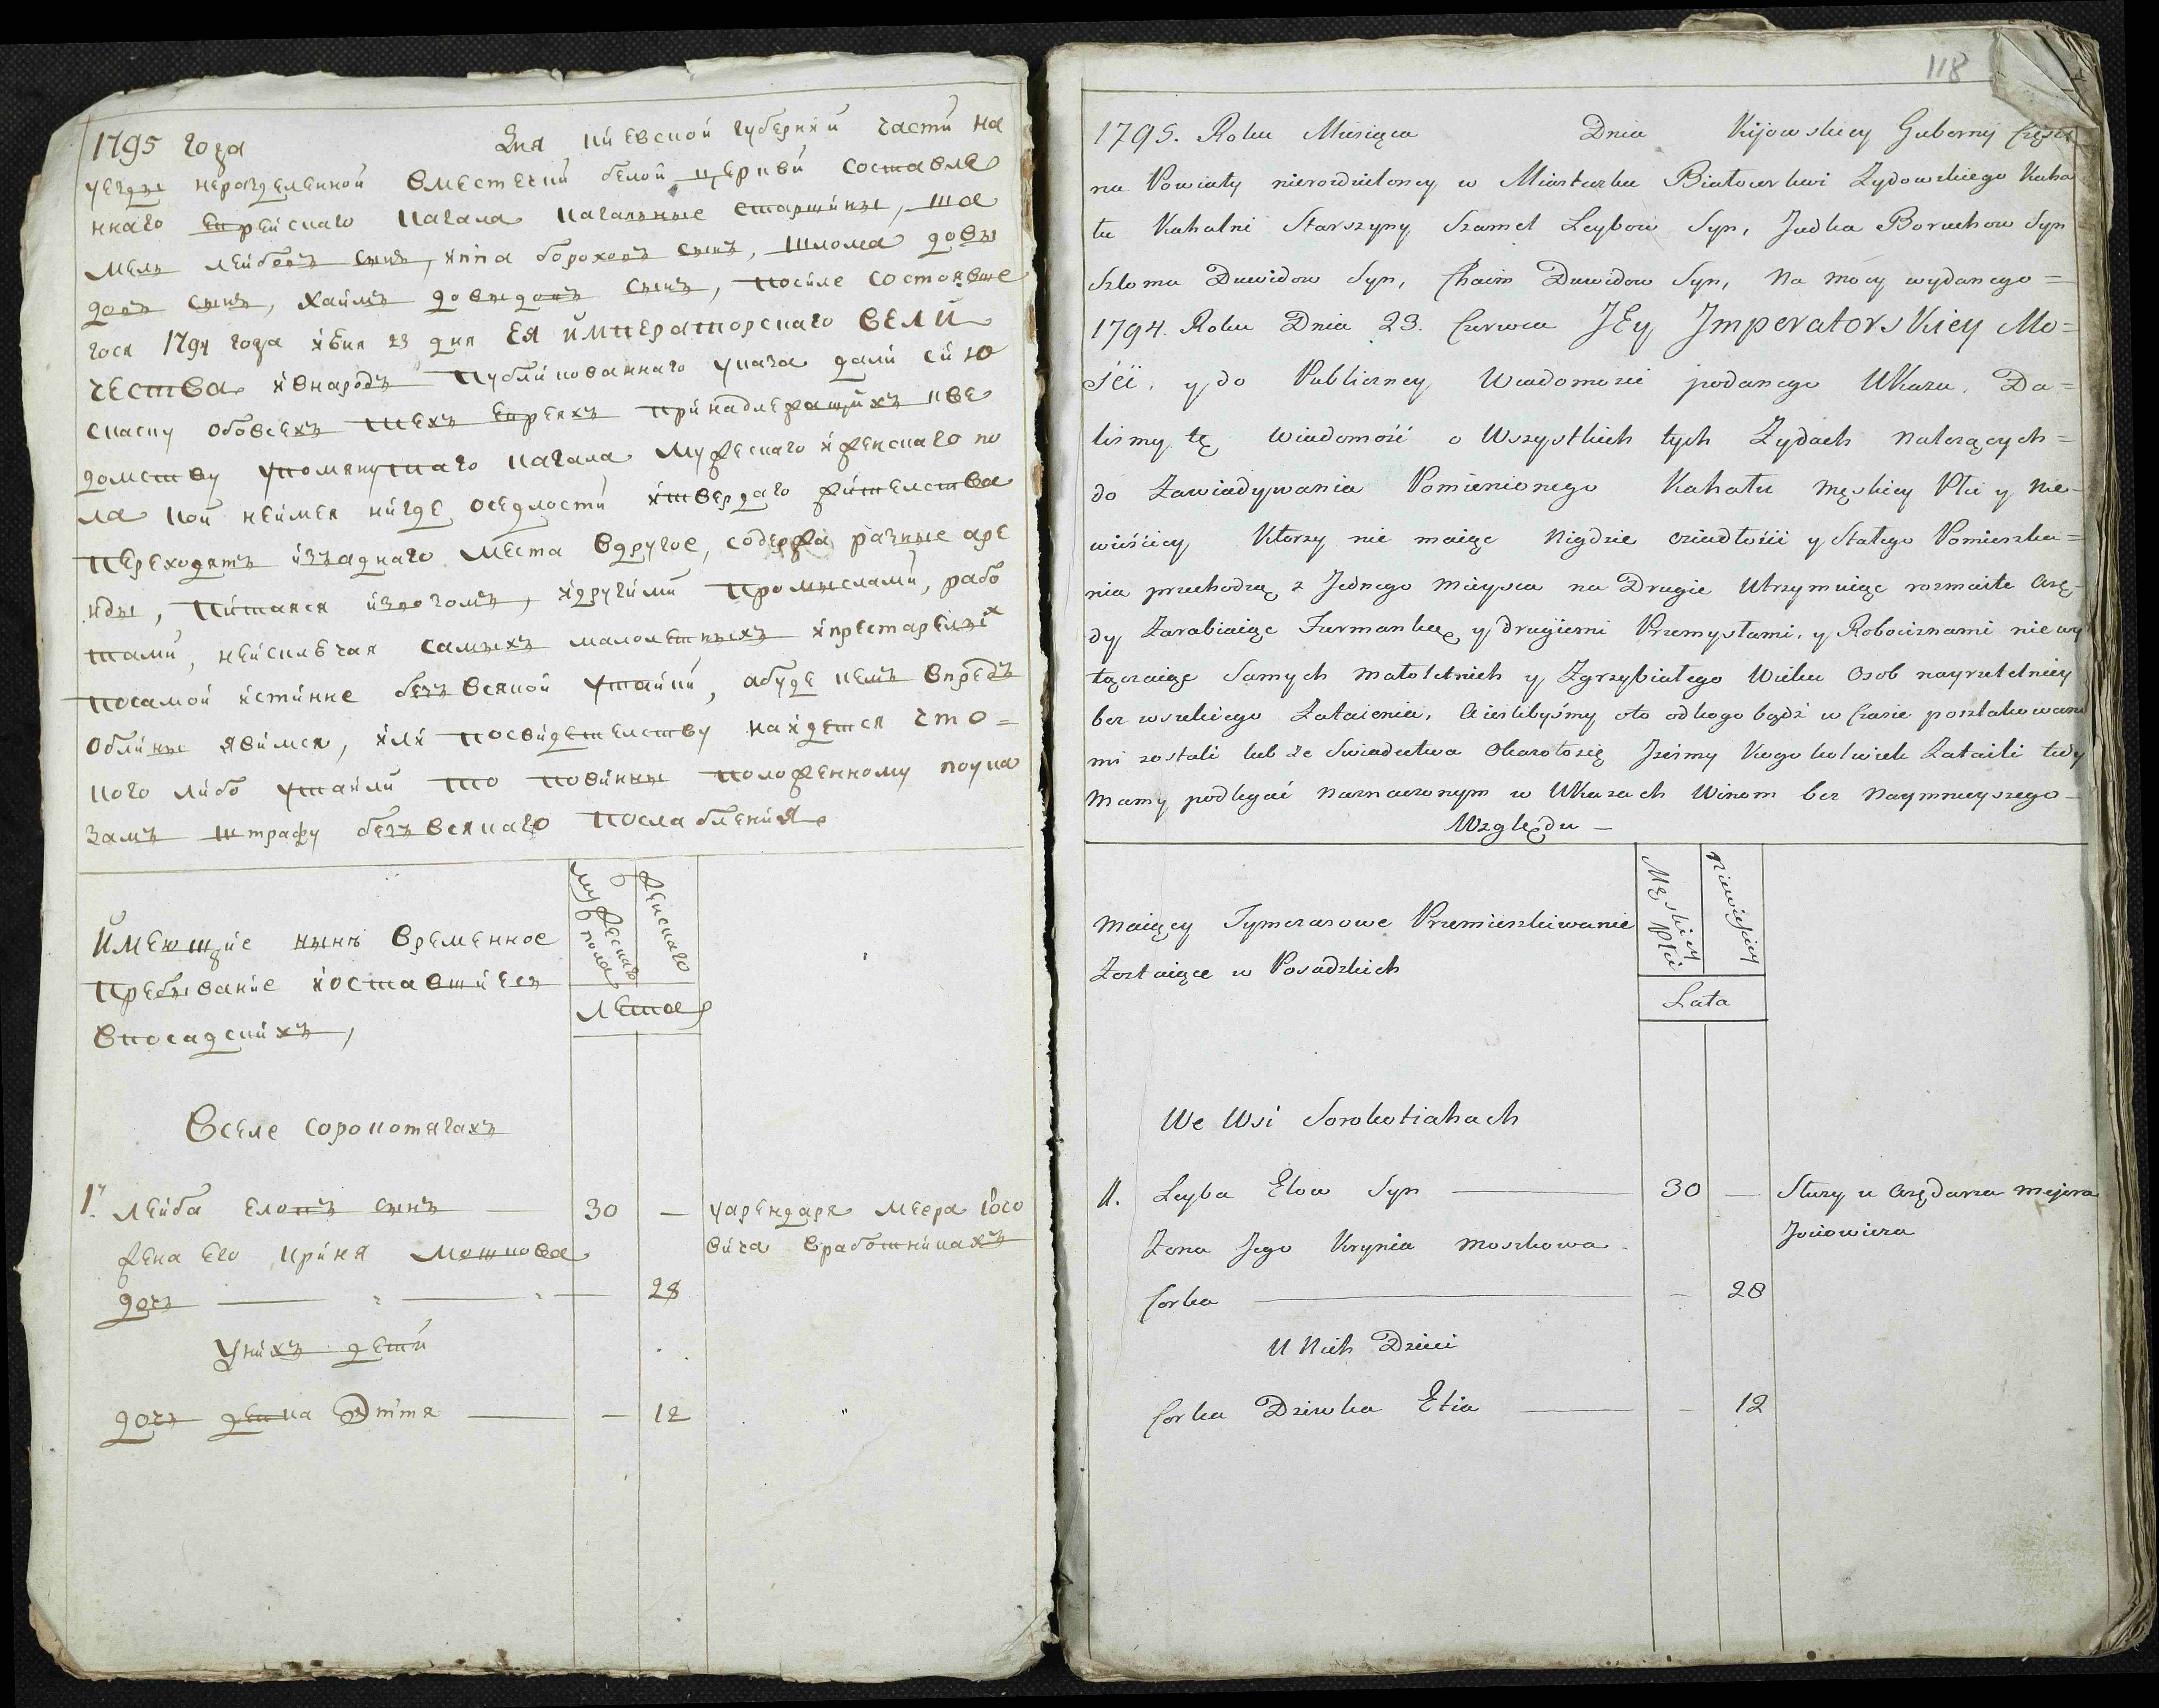 1795 года Дня киевской губернии части на
уезды неразделенной вместечки белой церкви составле
ннаго еврейскаго кагала кагальные старшины, шое
мель лейбовъ сынъ, юпка бороховъ сынъ, шлома довы
довъ сынъ, хаимъ довыдовъ сынъ, после состоявше
гося 1794 года июня 23 дня ея императорскаго вели
чества ивнародъ публикованнаго указа дали сию
скаску ововсехъ техъ евреяхъ принадлежащихъ кве
домству упомянутаго кагала мужескаго иженскаго по
ла кои неимея нигде оседлости итвердаго жительства
переходятъ изъаднаго места вдругое, содержа разные аре
нды, питаяся извозомъ, идругими промыслами, рабо
тами, неисключая самыхъ малолетныхъ ипрестарелыхъ
посамой истинне безъ всякой утайки, абуде кемъ впредъ
обличены явимся, или посвидетелству найдется что =
кого либо утаили то повинны положенному поука
замъ штрафу безъ всякаго послабления
Имеющие нынъ временное
пребывание иоставшиесь
впосадскихъ,
мужескаго пола
женскаго
лета
Вселе соропотягахъ
1. лейба еловъ сынъ — 30 — уарендаря меера іосо
жена его криня мошкова вича вработникахъ
дочь — 28
Унихъ дети
дочь девка Этя — — 12 "
118
1795. Roku Miesiąca Dnia Kijowskiey Gubernij Części
na Powiaty nierozdzieloney w Miasteczku Białocerkwi Zydowskiego Kaha
łu Kahalni Starszyny Szamel Leybow Syn, Judka Boruchow Syn
Szloma Dawidow Syn, Chaim Dawidow Syn, Na mocy wydanego =
1794. Roku Dnia 23. Czerwca JEy Imperatorskiey Mo=
ści, y do Publiczney Wiadomości podanego Ukazu, Da=
liśmy tę wiadomość o Wszystkich tych Zydach należących =
do Zawiadywania Pomienionego Kahału Męskiey Płci y Nie-
wieściey Ktorzy nie maiąc Nigdzie osiadłości y Stałego Pomieszka=
nia przechodzą z Jednego Mieysca na Drugie Utrzymuiąc rozmaite Arę-
dy Zarabiaiąc Furmanką y drugiemi Przemysłami, y Robociznami nie wy
łączaiąc Samych małoletnich y Zgrzybiałego Wieku Osob nayrzetelniey
bez wszelkiego Zataienia, a ieślibyśmy oto odkogo bądź w Czasie poszlakowane
mi zostali lub ze Swiadectwa Okazałosię Jżeśmy Kogo kolwiek Zataili tedy
Mamy podlegać Naznaczonym w Ukazach Winom bez Naymnieyszego =
Względu —
Maiący Tymczasowe Przemieszkiwanie
Zostaiące w Posadzkich
Męskiey Płci
Niewieściey
Lata
We Wsi Sorokotiahach
1. Leyba Elow Syn — 30 — Służy u Arędarza Mejera
Zona Jego Krynia Moszkowa Josiowicza
Corka — — 28
U Nich Dzieci
Corka Dziewka Etia — — 12